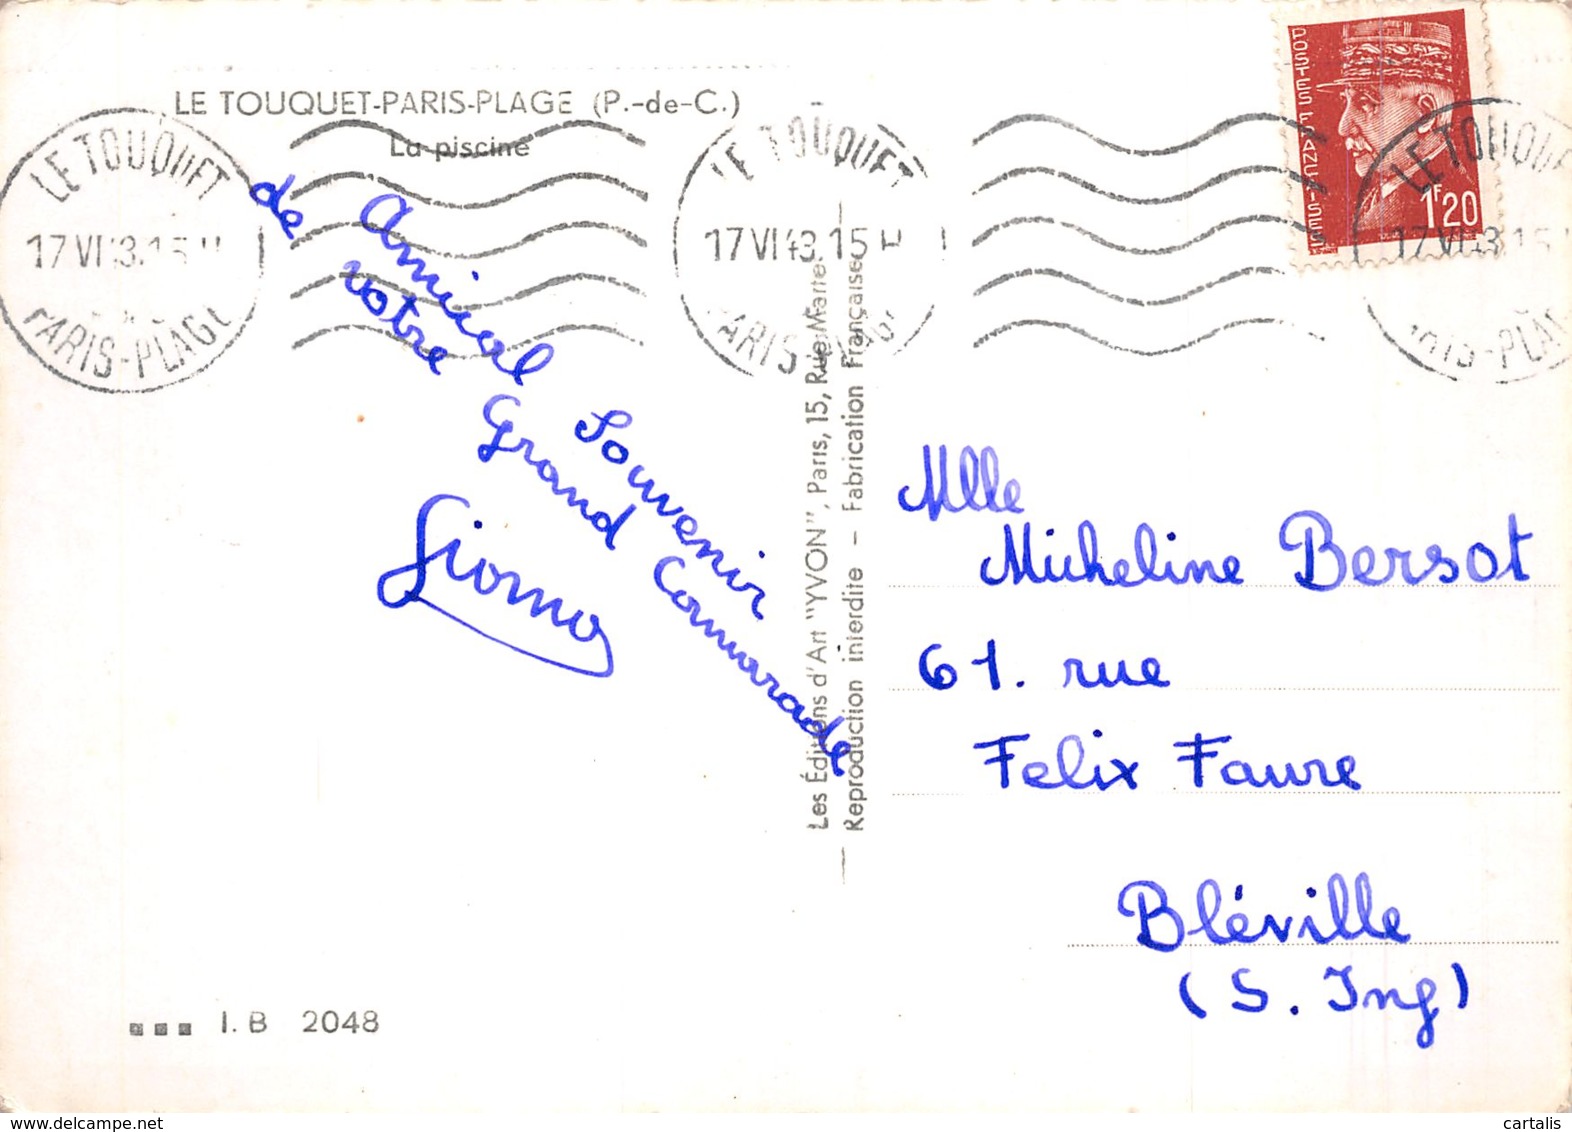 LE TOUQUET-PARIS-PLAGE (P.-de-C.)
La piscine
LE TOUQUET
17 VI 43. 15 H
PARIS-PLAGE
LE TOUQUET
17 VI 43. 15 H
PARIS-PLAGE
POSTES FRANÇAISES
1F20
LE TOUQUET
17 VI 43 15 H
PARIS-PLAGE
Amical Souvenir
de votre Grand Camarade
Les Éditions d'Art "YVON", Paris, 15, Rue Martel
Reproduction interdite - Fabrication Française
Mlle
Micheline Bersot
61. rue
Felix Faure
Bléville
(S. Ing)
I.B 2048
cartalis